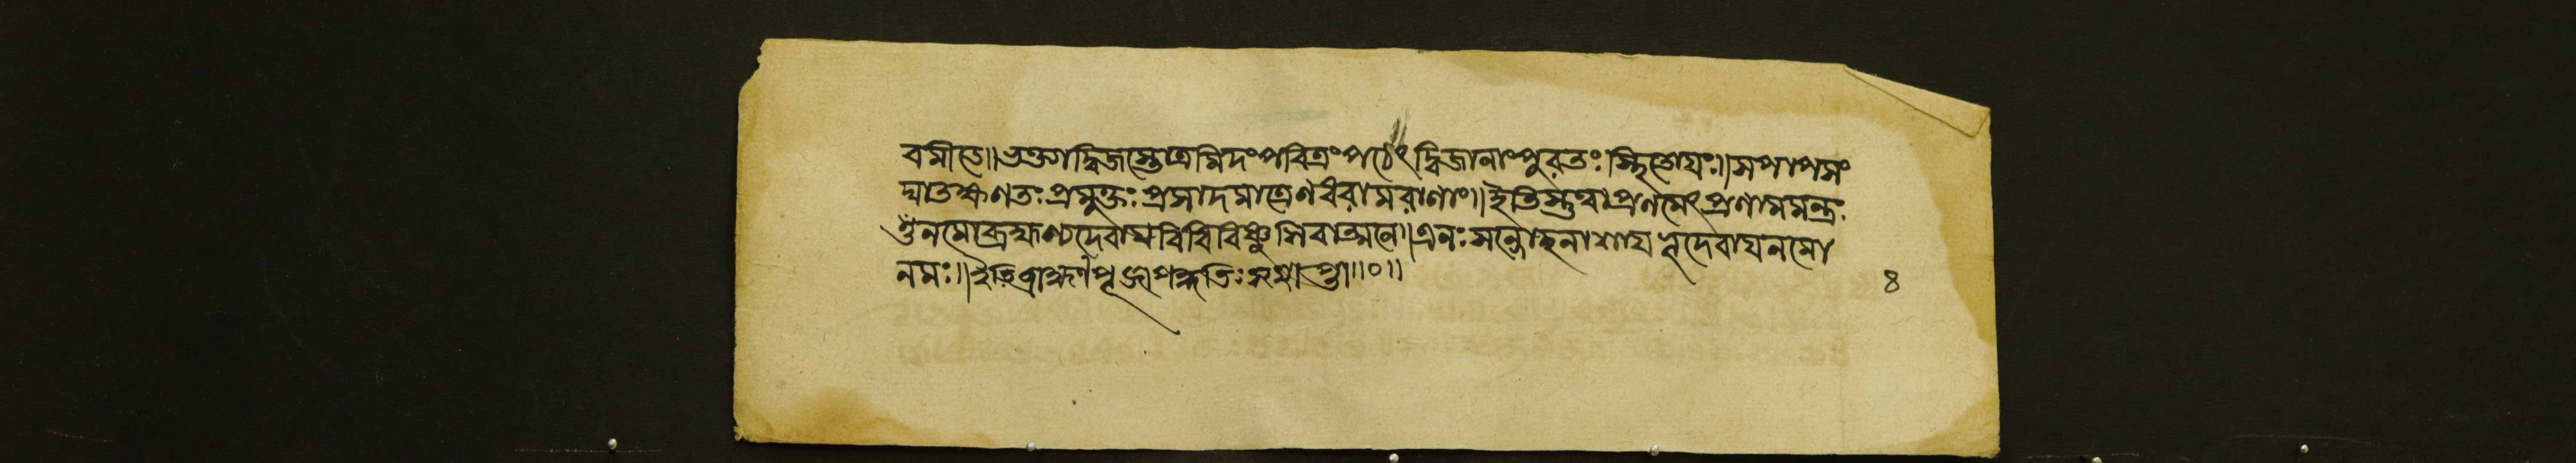 বমীতে॥ভক্ত্যাদ্বিজস্তোত্রমিদংপবিত্রংপঠেৎদ্বিজানাংপুরতঃস্থিতোযঃ॥সপাপসং
ঘাতক্ষণতঃপ্রমুক্তঃপ্রসাদমাত্রেণধরামরাণাং॥ইতিস্তুত্বাপ্রণমেৎপ্রণামমন্ত্রঃ
ওঁনমোব্রহ্মণ্যদেবাযবিধিবিষ্ণুশিবাত্মনে॥এনঃসন্দোহনাশাযভূদেবাযনমো
নমঃ॥ইতিব্রাহ্মণপূজাপদ্ধতিঃসমাপ্তা॥০॥
৪